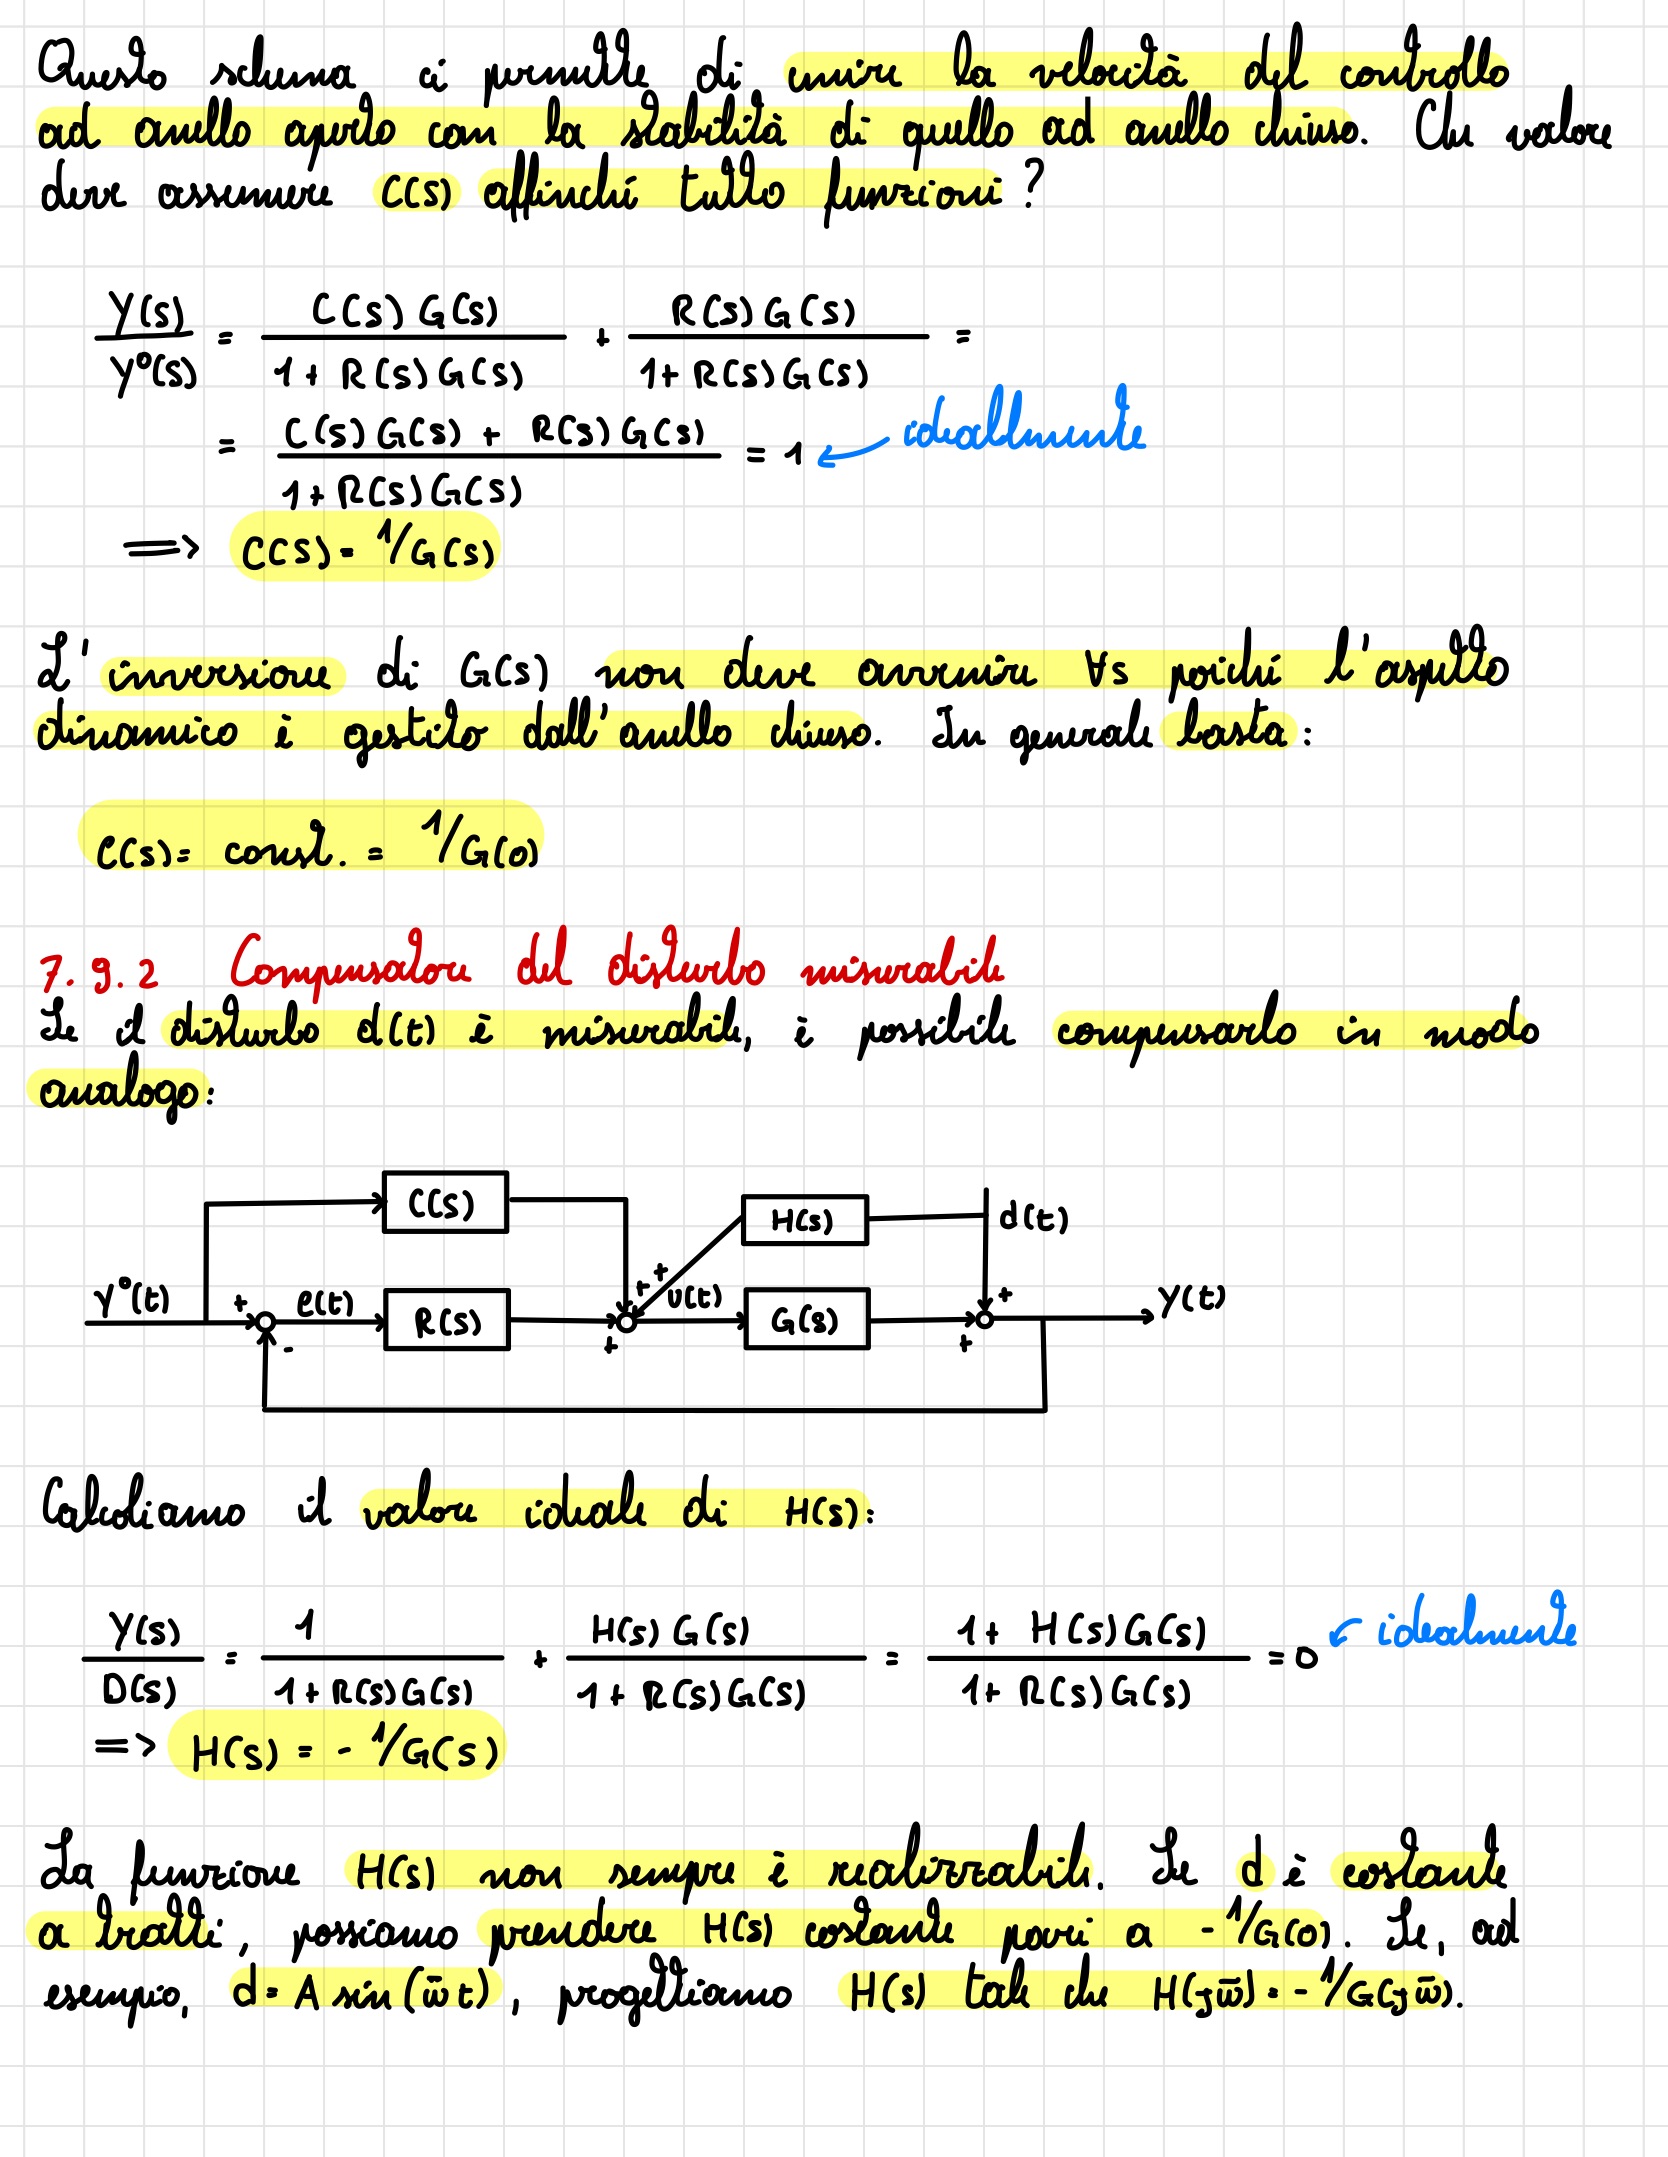 Questo schema ci permette di unire la velocità del controllo
ad anello aperto con la stabilità di quello ad anello chiuso. Che valore
deve assumere C(s) affinché tutto funzioni?
Y(s)/Y°(s) = C(s)G(s)/(1+R(s)G(s)) + R(s)G(s)/(1+R(s)G(s)) =
= (C(s)G(s) + R(s)G(s))/(1+R(s)G(s)) = 1 ← idealmente
⟹ C(s) = 1/G(s)
L'inversione di G(s) non deve avvenire ∀s poiché l'aspetto
dinamico è gestito dall'anello chiuso. In generale basta:
C(s) = const. = 1/G(0)
7.9.2 Compensatore del disturbo misurabile
Se il disturbo d(t) è misurabile, è possibile compensarlo in modo
analogo:
C(s)
H(s) d(t)
y°(t) + - e(t) R(s) + + + u(t) G(s) + + y(t)
Calcoliamo il valore ideale di H(s):
Y(s)/D(s) = 1/(1+R(s)G(s)) + H(s)G(s)/(1+R(s)G(s)) = (1+H(s)G(s))/(1+R(s)G(s)) = 0 ← idealmente
=> H(s) = - 1/G(s)
La funzione H(s) non sempre è realizzabile. Se d è costante
a tratti, possiamo prendere H(s) costante pari a -1/G(0). Se, ad
esempio, d = A sin(ω̄t), progettiamo H(s) tale che H(jω̄) = -1/G(jω̄).